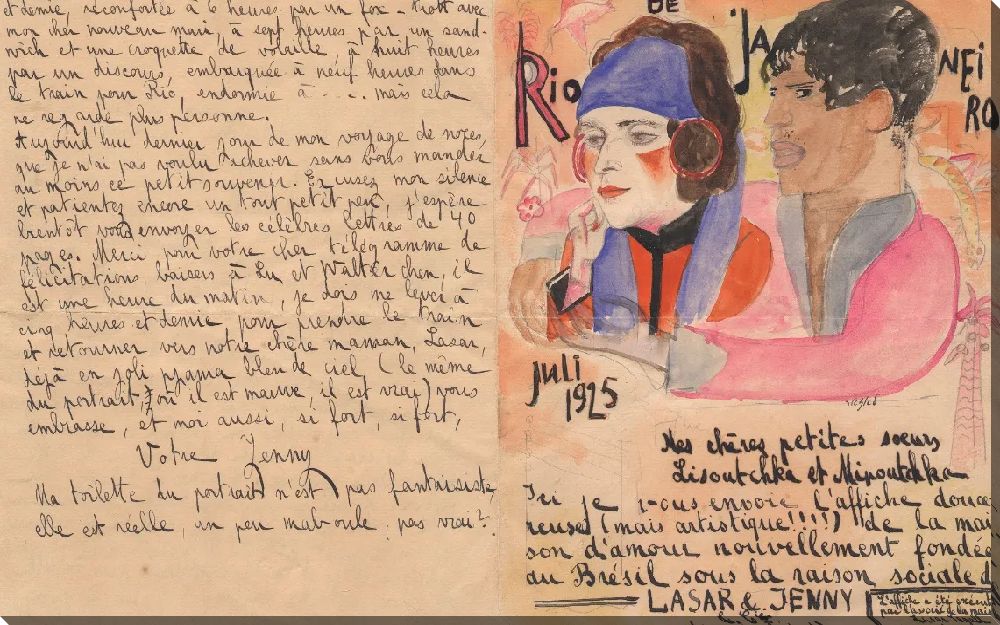 et demie, réconfortée à 6 heures par un fox-trott avec
mon cher nouveau mari, à sept heures par un sand-
wich et une croquette de volaille, à huit heures
par un discours, embarquée à neuf heures dans
le train pour Rio, endormie à .... mais cela
ne regarde plus personne.
Aujourd'hui dernier jour de mon voyage de noces,
que je n'ai pas voulu achever sans vous mander
au moins ce petit souvenir. Excusez mon silence
et patientez encore un tout petit peu, j'espère
bientôt vous envoyer les célèbres lettres de 40
pages. Merci pour votre cher télégramme de
félicitations, baisers à Lu et Walterchen, il
est une heure du matin, je dois me lever à
cinq heures et demie pour prendre le train
et retourner vers notre chère maman. Lasar,
déjà en joli pyjama bleu de ciel (le même
du portrait, où il est mauve, il est vrai) vous
embrasse, et moi aussi, si fort, si fort,
Votre Jenny
Ma toilette du portrait n'est pas fantaisiste,
elle est réelle, un peu maboule, pas vrai?
RIO DE JANEIRO
JULI
1925
Mes chères petites soeurs
Lisoutchka et Minoutchka
Ici je vous envoie l'affiche douce
reuse (mais artistique!!!!) de la mai
son d'amour nouvellement fondée
au Brésil sous la raison sociale d
LASAR & JENNY
L'affiche a été exécut
par l'associé de la mais